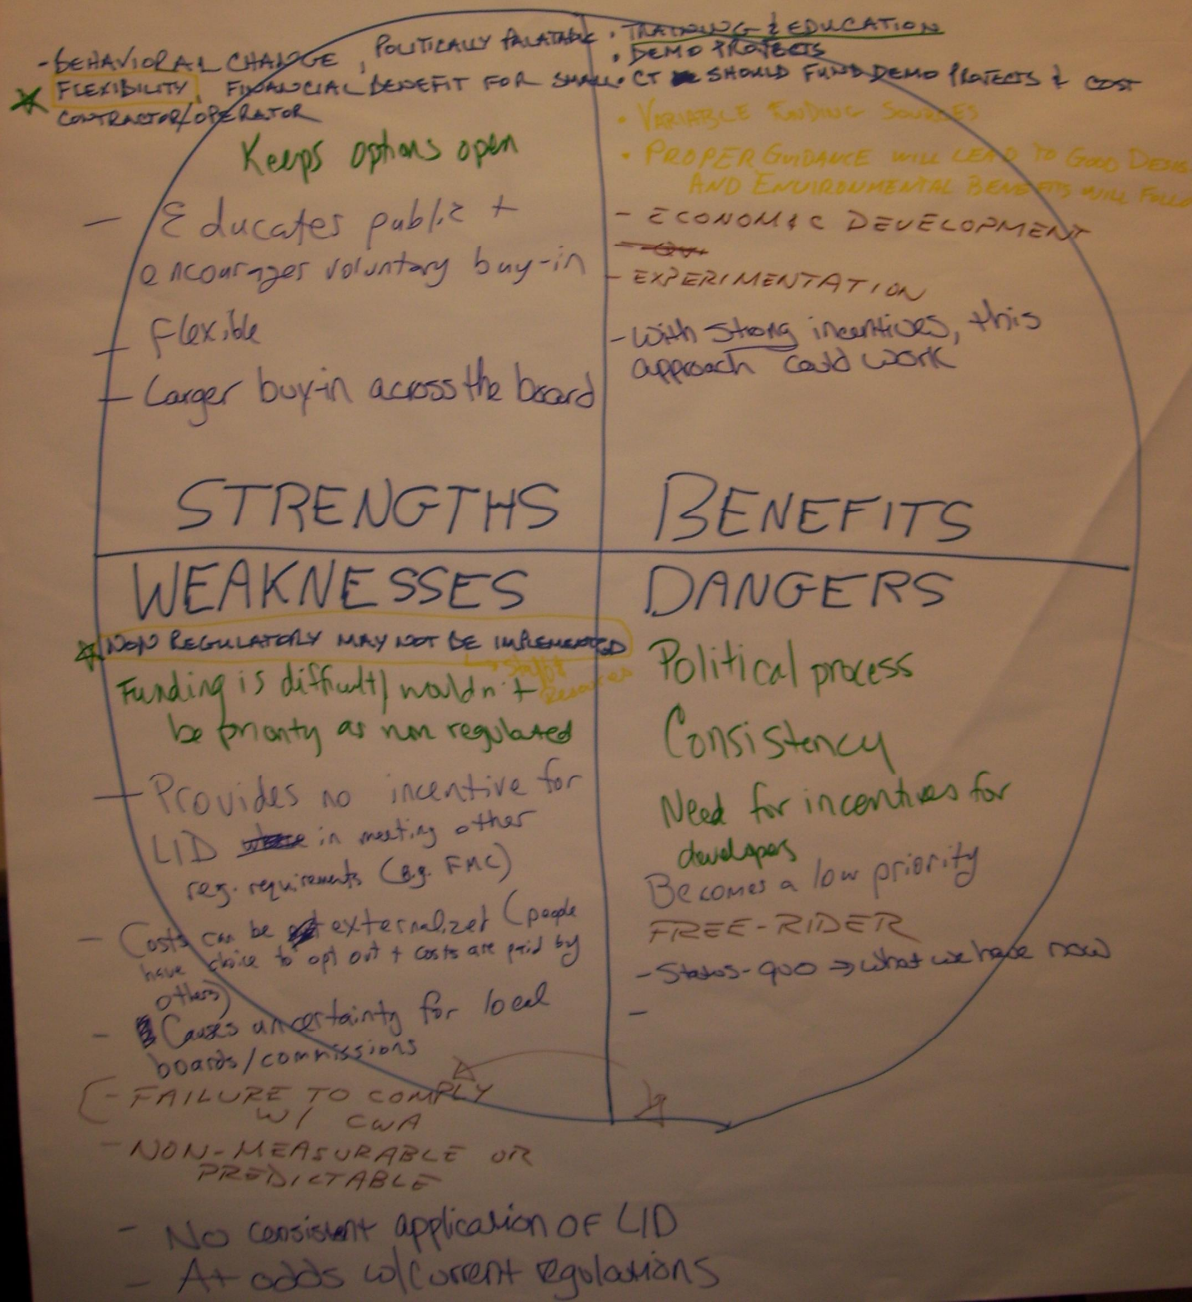 - BEHAVIORAL CHANGE, POLITICALLY PALATABLE
FLEXIBILITY, FINANCIAL BENEFIT FOR SMALL
CONTRACTOR/OPERATOR
Keeps options open
- Educates public +
encourages voluntary buy-in
- Flexible
- Larger buy-in across the board
STRENGTHS
• TRAINING & EDUCATION
• DEMO PROJECTS
• CT SHOULD FUND DEMO PROJECTS & COST
• VARIABLE FUNDING SOURCES
• PROPER GUIDANCE WILL LEAD TO GOOD DESIGN
AND ENVIRONMENTAL BENEFITS WILL FOLLOW
- ECONOMIC DEVELOPMENT
- EXPERIMENTATION
- With strong incentives, this
approach could work
BENEFITS
WEAKNESSES
NON REGULATORY MAY NOT BE IMPLEMENTED
Funding is difficult/wouldn't
be priority as non regulated
- Provides no incentive for
LID in meeting other
reg. requirements (e.g. FMC)
- Costs can be externalized (people
have choice to opt out + costs are paid by
others)
- Causes uncertainty for local
boards/commissions
- FAILURE TO COMPLY
W/ CWA
- NON-MEASURABLE OR
PREDICTABLE
- No consistent application OF LID
- At odds w/current regulations
DANGERS
Political process
Consistency
Need for incentives for
developers
Becomes a low priority
FREE-RIDER
- Status-quo → what we have now
-